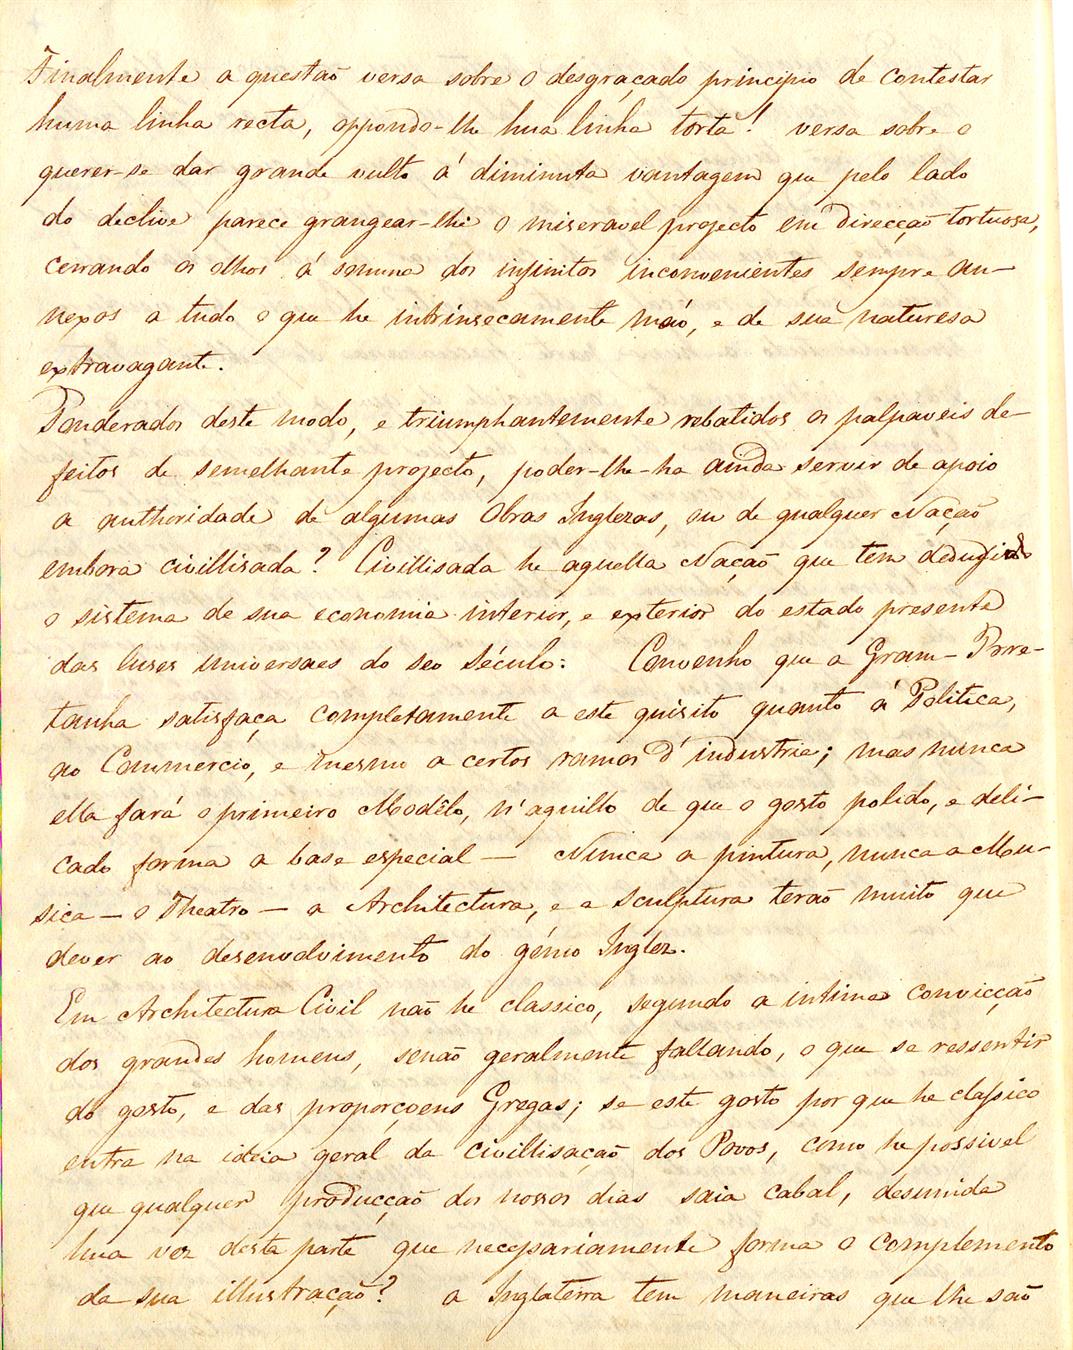 Finalmente a questaõ versa sobre o desgraçado principio de contestar
huma linha recta, oppondo-lhe hua linha torta! versa sobre o
querer-se dar grande vulto á diminuta vantagem que pelo lado
do declive parece grangear-lhe o miseravel projecto em direcção tortuosa,
cerrando os olhos á somma dos infinitos inconvenientes sempre an-
nexos a tudo o que he intrinsecamente máo, e de sua naturesa
extravagante.
Ponderados deste modo, e triumphantemente rebatidos os palpaveis de-
feitos de semelhante projecto, poder-lhe-ha ainda servir de apoio
a authoridade de algumas Obras Inglezas, ou de qualquer Naçaõ
embora civillisada? Civillisada he aquella Naçaõ que tem dedusido
o sistema de sua economia interior, e exterior do estado presente
das luses universaes do seo século: Convenho que a Gram-Bre-
tanha satisfaça completamente a este quisito quanto á Politica,
ao Commercio, e mesmo a certos ramos d'industria; mas nunca
ella fará o primeiro Modêlo, n'aquillo de que o gosto polido, e deli-
cado forma a base especial — Nunca a pintura, nunca a Mu-
sica — o Theatro — a Architectura, e a sculptura teraõ muito que
dever ao desenvolvimento do génio Inglez.
Em Architectura Civil naõ he classico, segundo a intima convicçaõ
dos grandes homens, senaõ geralmente fallando, o que se ressentir
do gosto, e das proporçoens Gregas; se este gosto por que he classico
entra na ideia geral da civillisaçaõ dos Povos, como he possivel
que qualquer producçaõ dos nossos dias saia cabal, desunida
hua vez desta parte que necessariamente forma o complemento
da sua illustraçaõ? a Inglaterra tem maneiras que lhe saõ